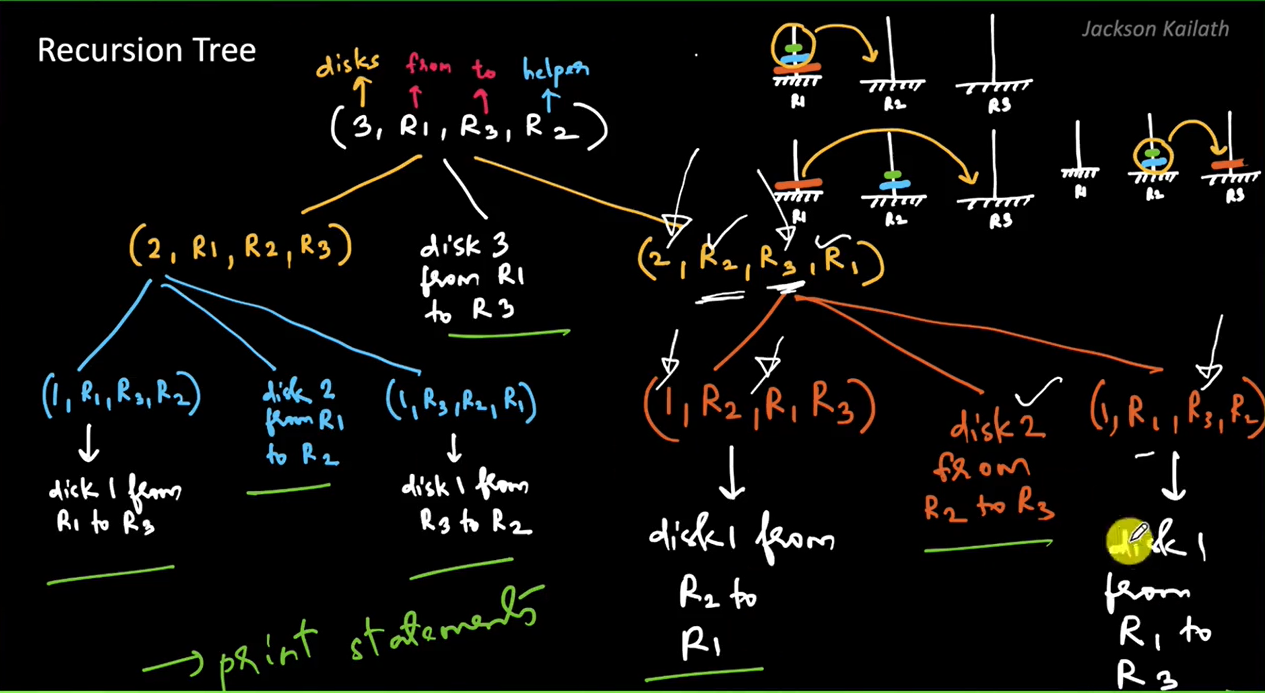 Recursion Tree
Jackson Kailath
disks from to helper
(3, R1, R3, R2)
R1 R2 R3
R1 R2 R3
R1 R2 R3
(2, R1, R2, R3)
disk 3
from R1
to R3
(2, R2, R3, R1)
(1, R1, R3, R2)
disk 2
from R1
to R2
(1, R3, R2, R1)
(1, R2, R1 R3)
disk 2
from
R2 to R3
(1, R1, R3, R2)
disk 1 from
R1 to R3
disk 1 from
R3 to R2
disk 1 from
R2 to
R1
disk 1
from
R1 to
R3
→ print statements